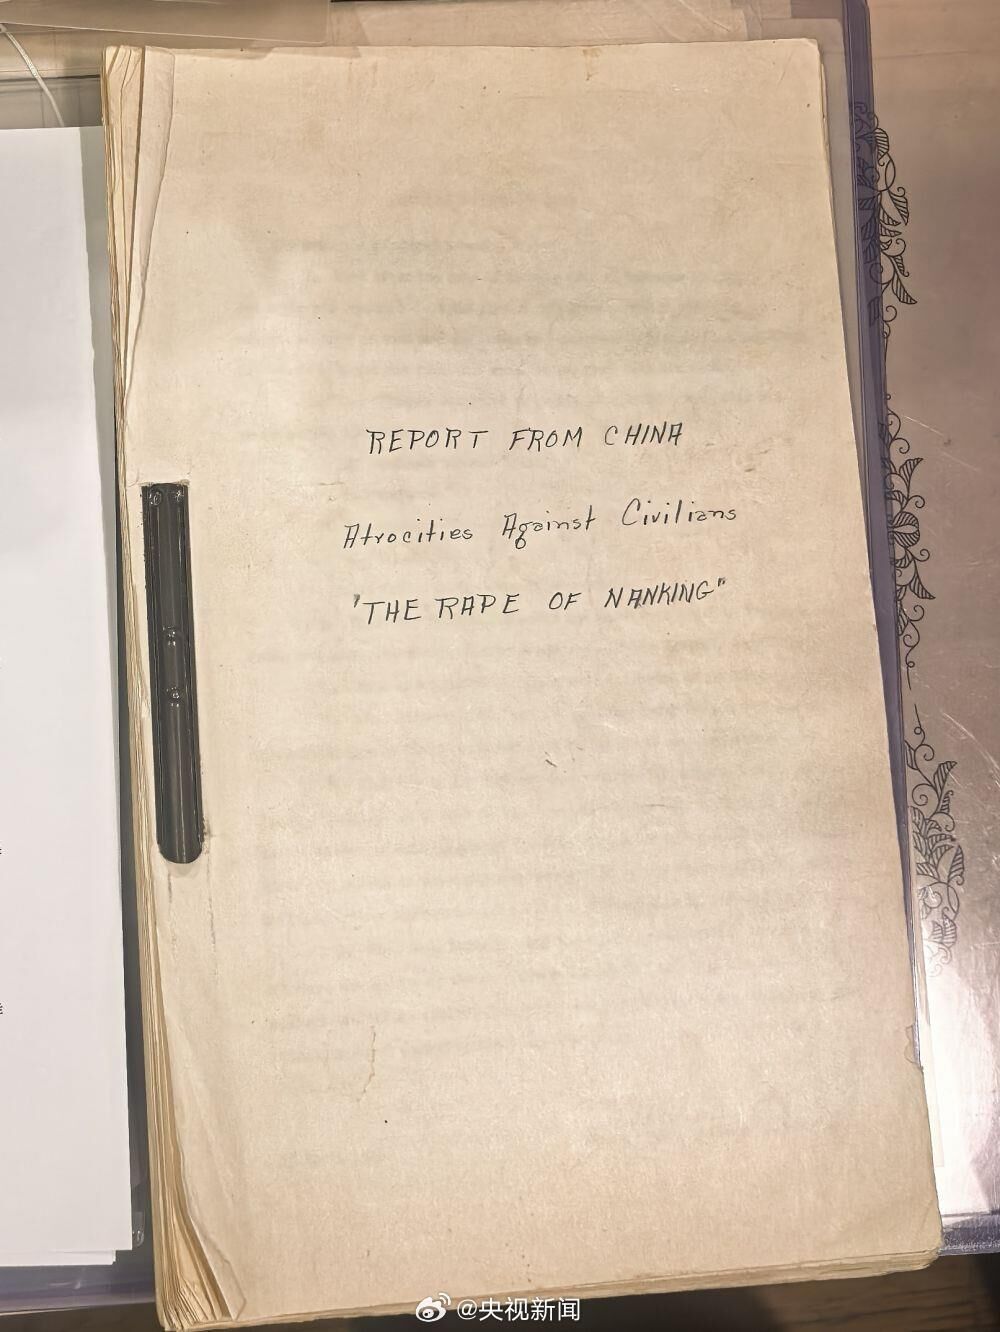 REPORT FROM CHINA
Atrocities Against Civilians
"THE RAPE OF NANKING"
@央视新闻